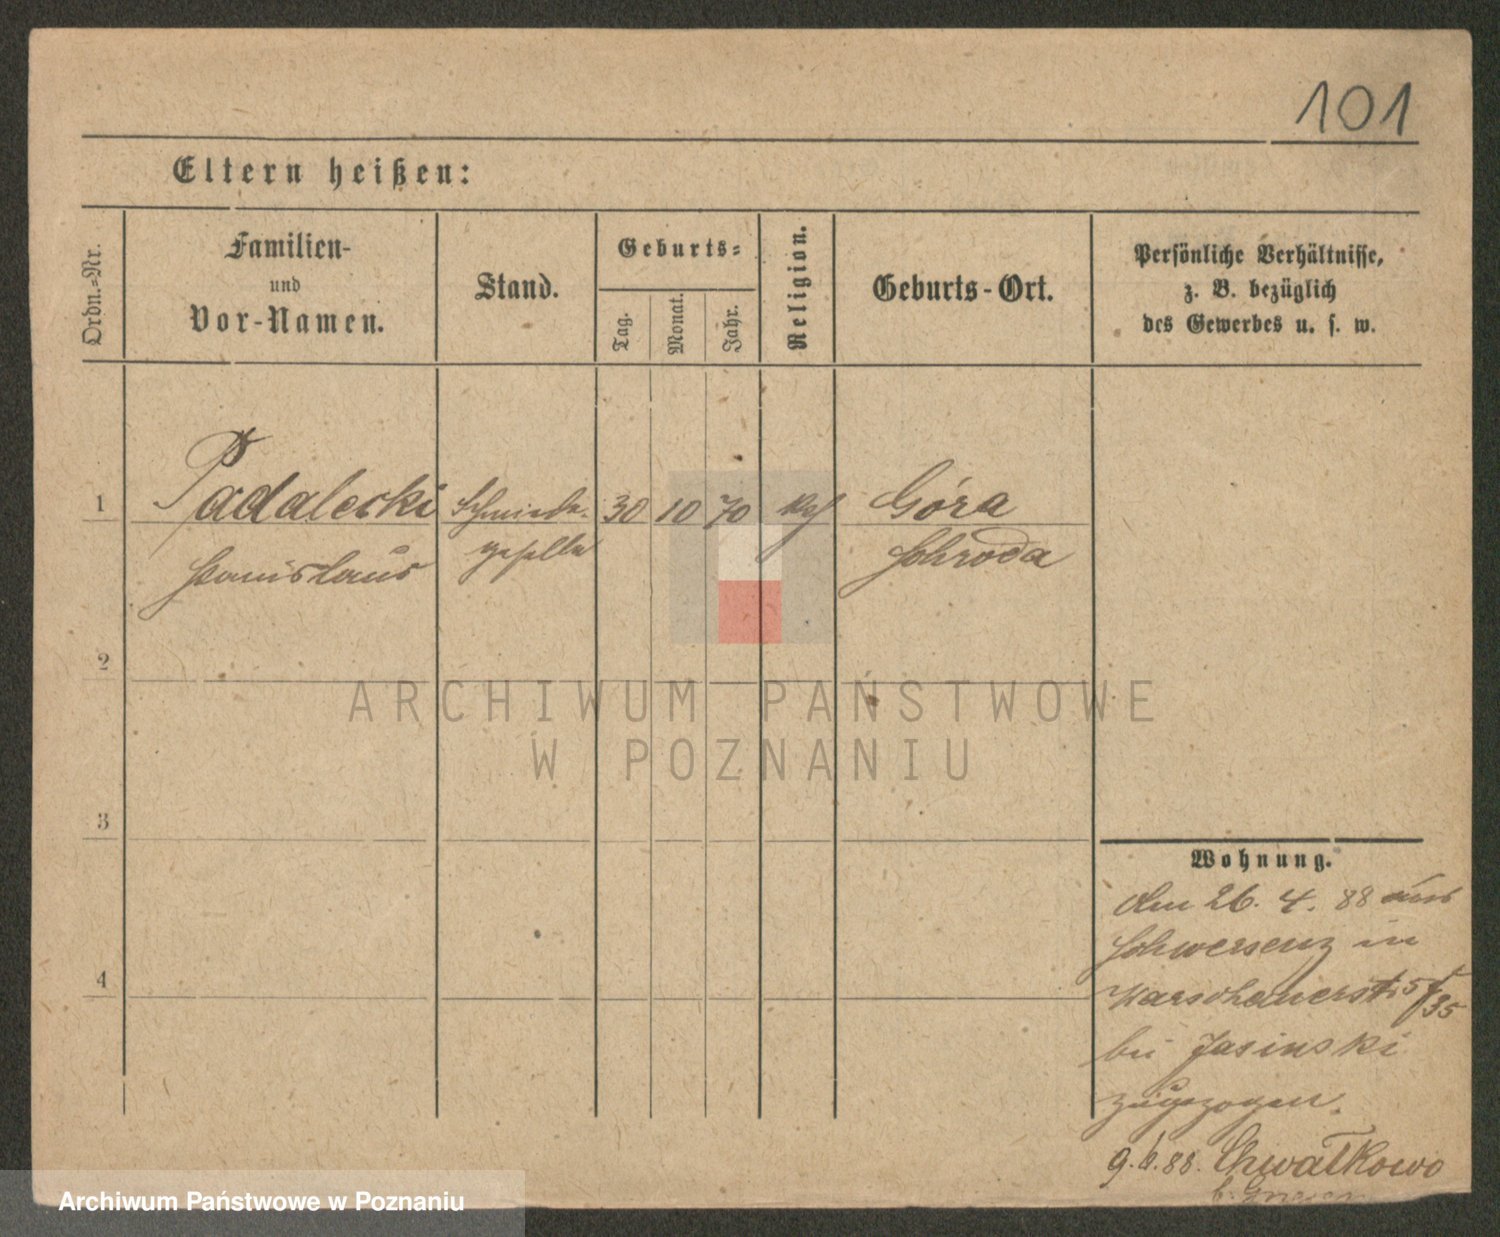 101
Eltern heißen:
Ordn.-Nr.
Familien-
und
Vor-Namen.
Stand.
Geburts-
Tag.
Monat.
Jahr.
Religion.
Geburts-Ort.
Persönliche Verhältnisse,
z. B. bezüglich
des Gewerbes u. s. w.
1
Padalecki
Schmiede-
30
10
70
Góra
Stanislaus
geselle
Schroda
2
3
4
ARCHIWUM PAŃSTWOWE
W POZNANIU
Wohnung.
Am 26. 4. 88 aus
Schwersenz in
Warschauerstr 5/35
bei Jasinski
zugezogen.
88. Chwałkowo
b. Gnesen
Archiwum Państwowe w Poznaniu